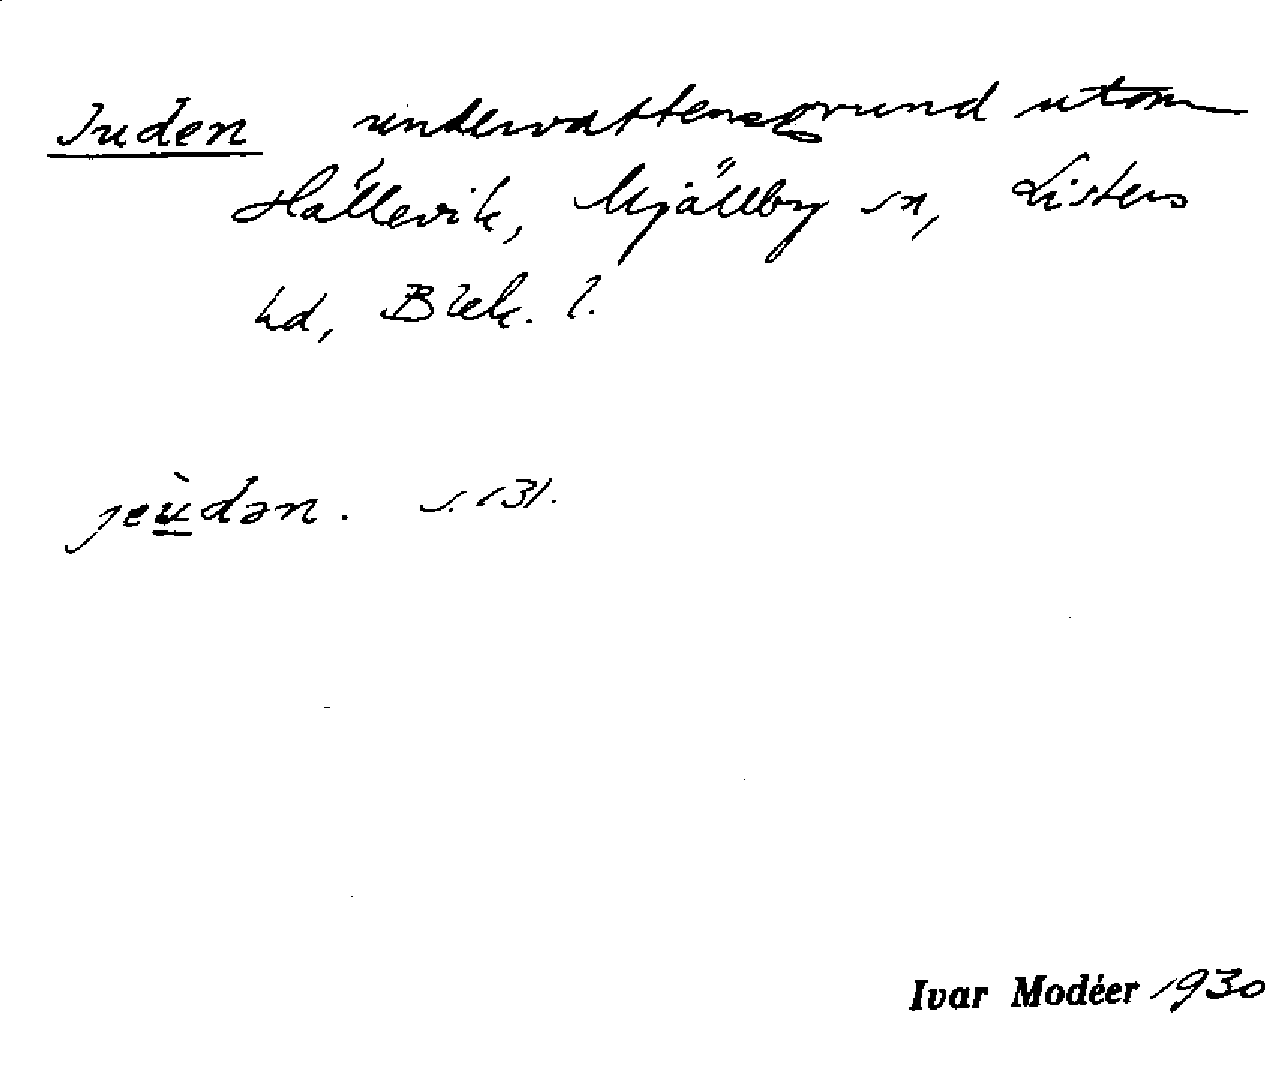 Juden undervattensgrund utom
Hällevik, Mjällby sn, Listers
hd, Blek. l.
jeùdən. s. 131.
Ivar Modéer 1930